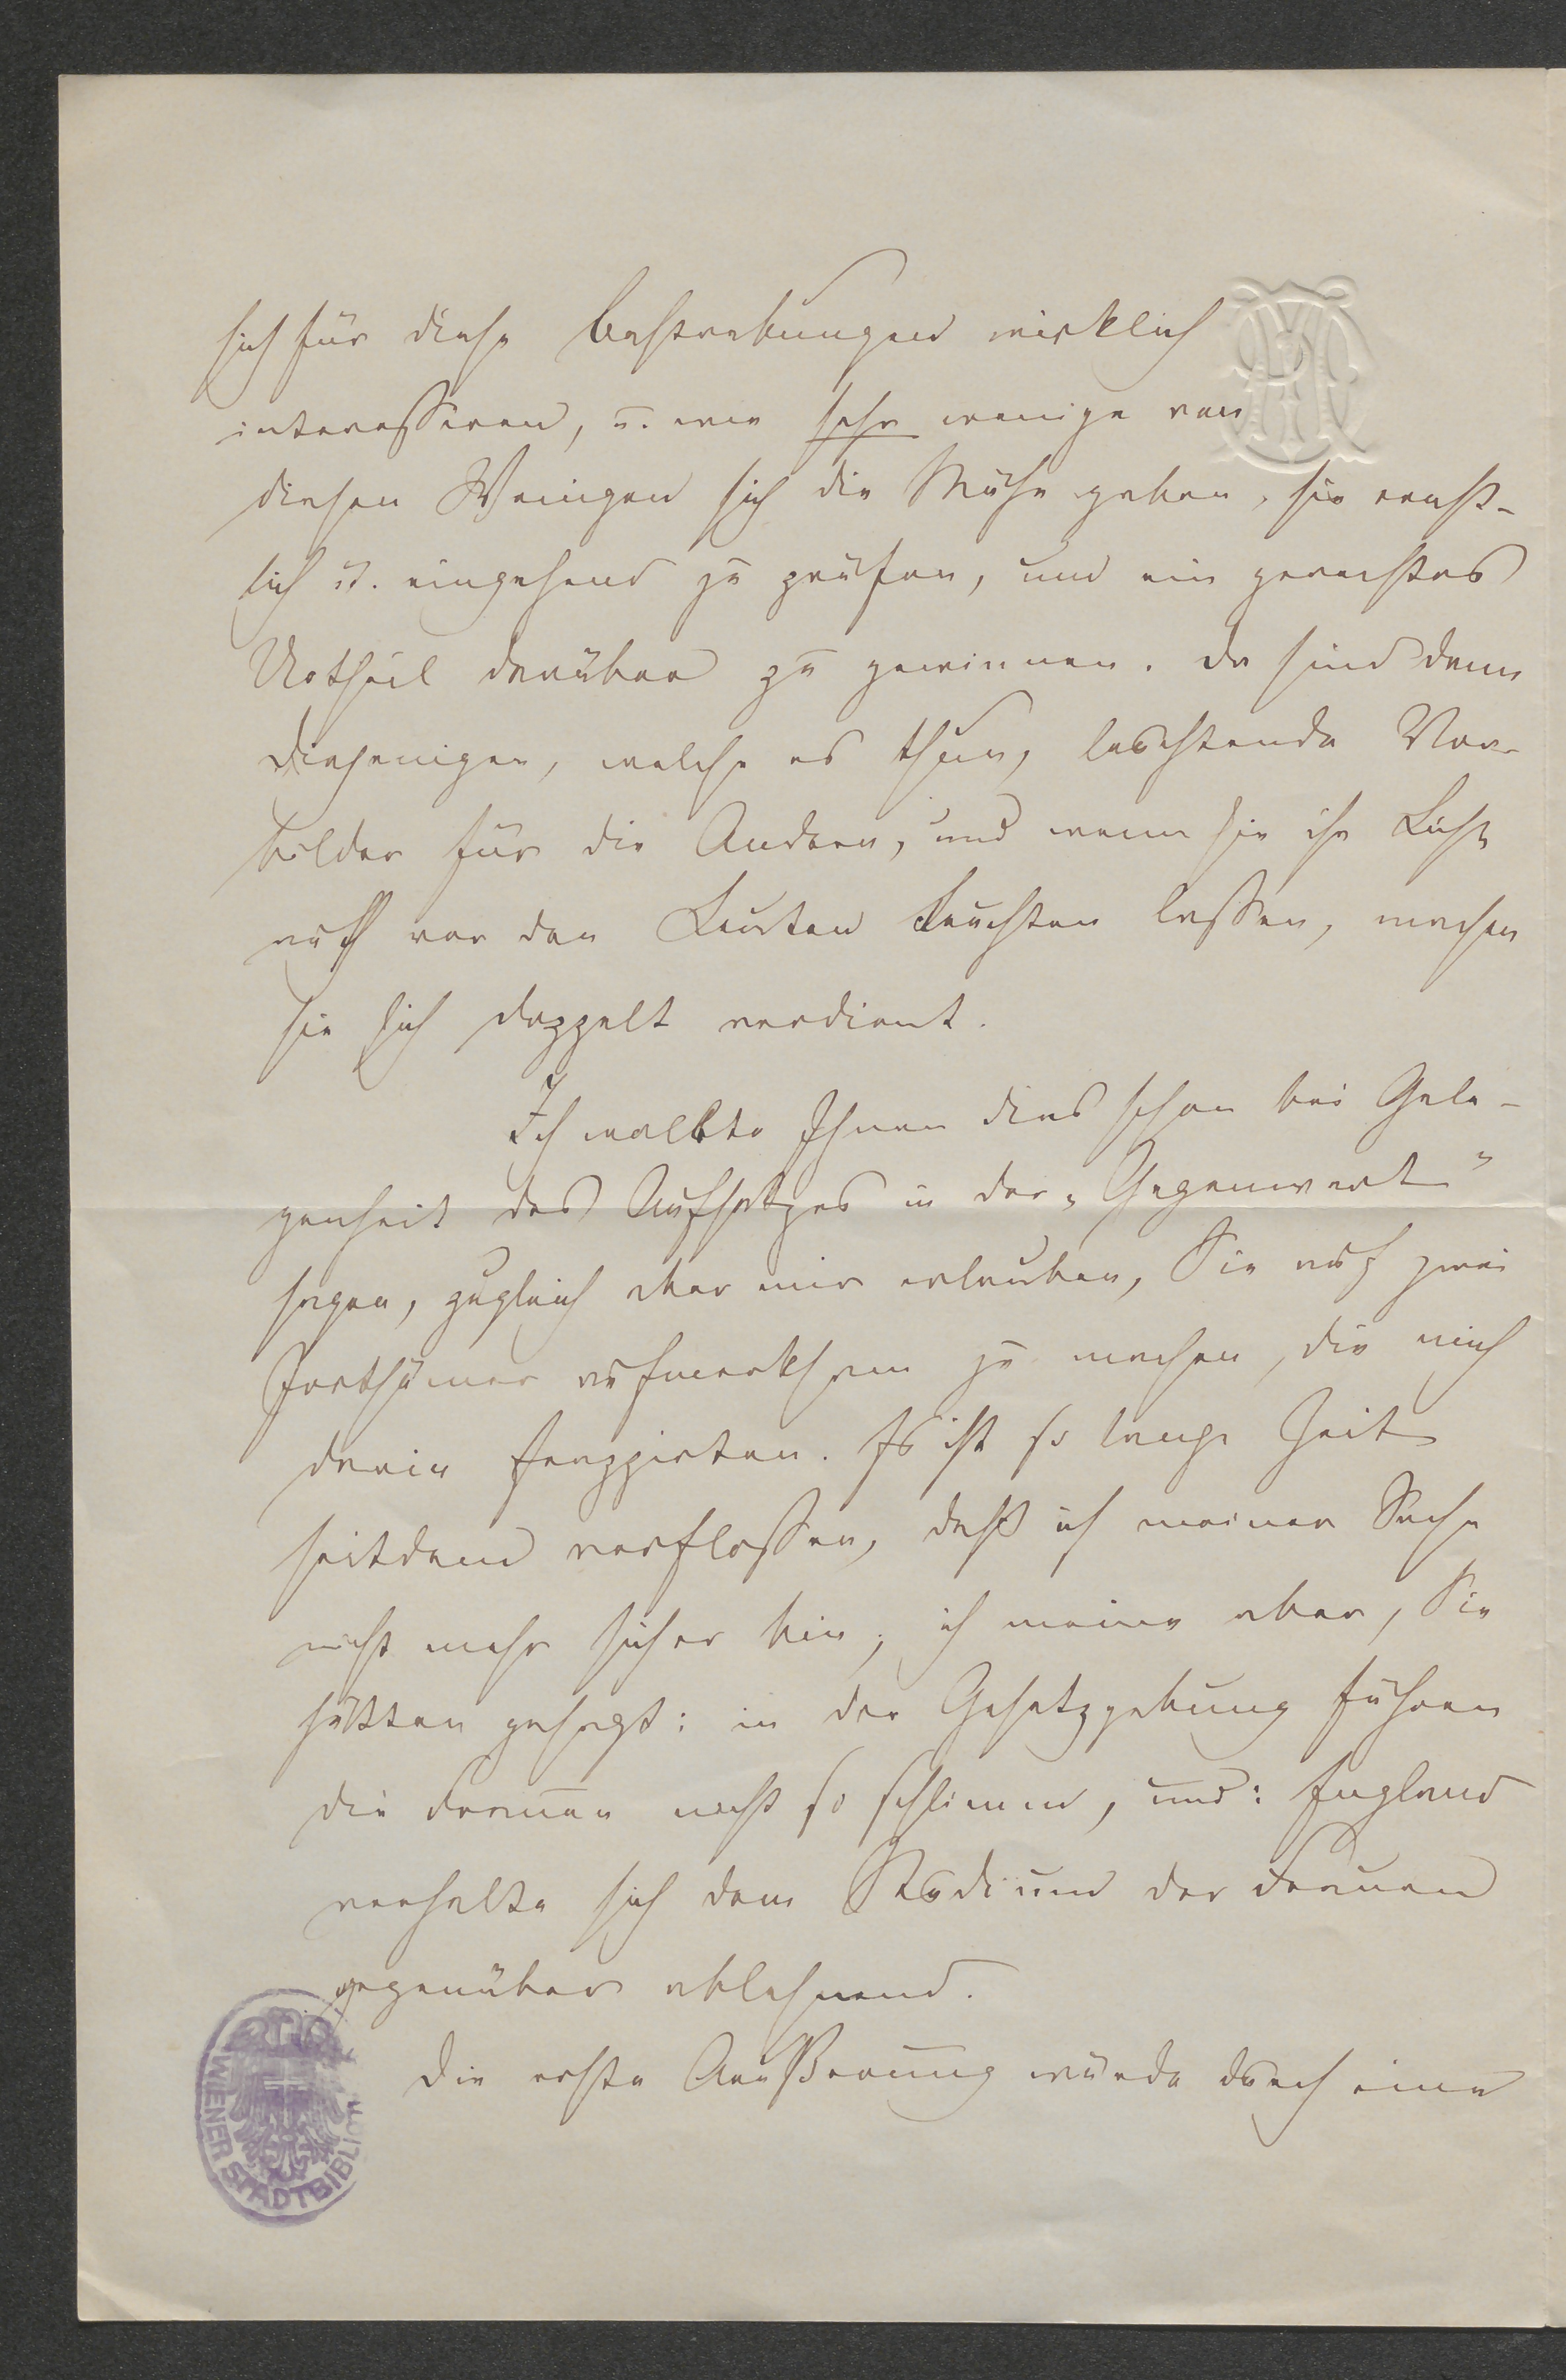 sich für diese Bestrebungen wirklich
interessiren, u. wie sehr wenige von
diesen Wenigen sich die Mühe geben, sie ernst-
lich u. eingehend zu prüfen, und ein gerechtes
Urtheil darüber zu gewinnen. Da sind denn
diejenigen, welche es thun, leuchtende Vor-
bilder für die Andern, und wenn sie ihr Licht
auch vor den Leuten leuchten lassen, machen
sie sich doppelt verdient.
Ich wollte Ihnen dies schon bei Gele-
genheit des Aufsatzes in der „Gegenwart"
sagen, zugleich aber mir erlauben, Sie auf zwei
Irrthümer aufmerksam zu machen, die mich
darin frappirten. Es ist so lange Zeit
seitdem verflossen, daß ich meiner Sache
nicht mehr sicher bin; ich meine aber, Sie
hätten gesagt: in der Gesetzgebung führen
die Frauen nicht so schlimm, und: England
verhalte sich dem Studium der Frauen
gegenüber ablehnend.
Die erste Äußerung wurde durch eine
WIENER STADTBIBLIO